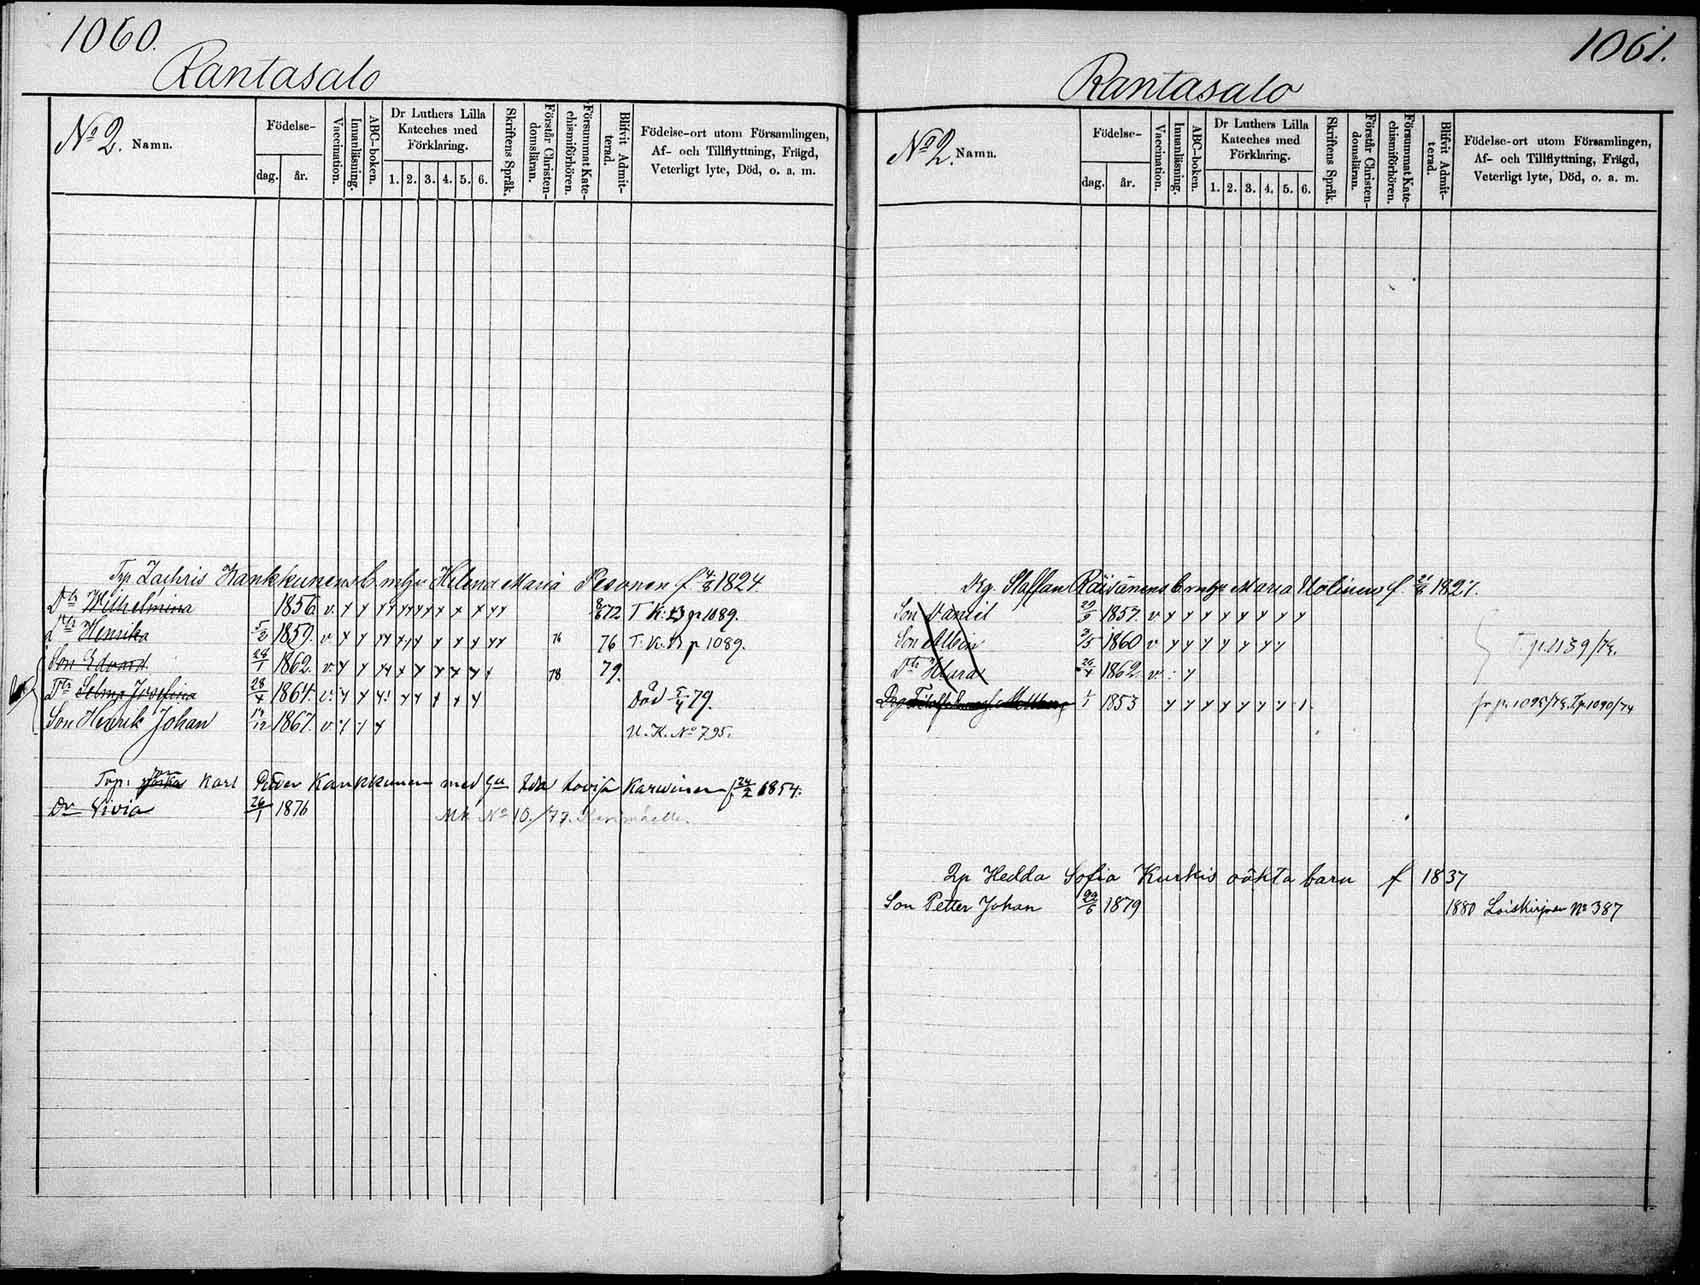 1060.
Rantasalo
No 2. Namn.
Födelse-
dag. år.
Vaccination.
Innanläsning.
ABC-boken.
Dr Luthers Lilla Kateches med Förklaring.
1. 2. 3. 4. 5. 6.
Skriftens Språk.
Förstår Christendomsläran.
Försummat Katechismiförhören.
Blifvit Admitterad.
Födelse-ort utom Församlingen,
Af- och Tillflyttning, Frägd,
Veterligt lyte, Död, o. a. m.
Zachris Kankkunens b. m. hu Helena Maria Pesonen f. 1824
Dtr Wilhelmina 1856 v. 72 T. K. p 1089.
Dtr Henrika 1859. v 76 76 T. K. p 1089.
Son Edvard 28/1 1862. v 78 79.
Dtr Selma Josefina 28/4 1864. v. Död 79.
Son Henrik Johan 1867. v U. K. No 795.
Karl Petter Kankkunen med Ida Lovisa Karvinen f. 24/2 1854.
Dr Livia 26/1 1876 No 10./77.
1061.
Rantasalo
No 2. Namn.
Födelse-
dag. år.
Vaccination.
Innanläsning.
ABC-boken.
Dr Luthers Lilla Kateches med Förklaring.
1. 2. 3. 4. 5. 6.
Skriftens Språk.
Förstår Christendomsläran.
Försummat Katechismiförhören.
Blifvit Admitterad.
Födelse-ort utom Församlingen,
Af- och Tillflyttning, Frägd,
Veterligt lyte, Död, o. a. m.
Drg. Staffan Räisänens b. m. hu Maria f. 1827.
Son Daniel 1857. v
Son Albin 3/5 1860 v
Dtr Klara 1862. v
1/1 1853 fr p. 1095/73. T p 1090/74
Hedda Sofia Kurkis oäkta barn f 1837
Son Petter Johan 1879 1880 Loiskirjaan No 387